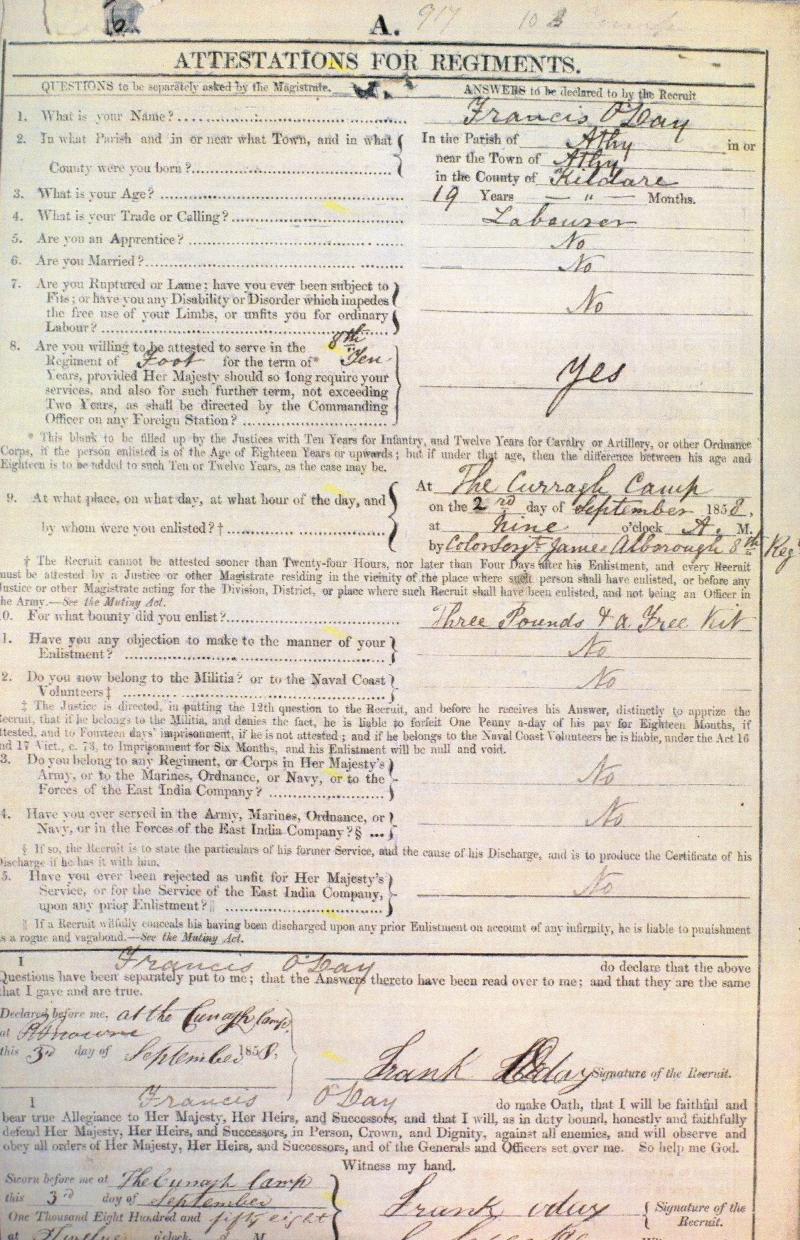 6
A. 917 10
ATTESTATIONS FOR REGIMENTS.
QUESTIONS to be separately asked by the Magistrate. ANSWERS to be declared to by the Recruit
1. What is your Name? Francis O'Day
2. In what Parish and in or near what Town, and in what County were you born? In the Parish of Athy in or
near the Town of Athy
in the County of Kildare
3. What is your Age? 19 Years — " — Months.
4. What is your Trade or Calling? Labourer
5. Are you an Apprentice? No
6. Are you Married? No
7. Are you Ruptured or Lame; have you ever been subject to
Fits; or have you any Disability or Disorder which impedes
the free use of your Limbs, or unfits you for ordinary
Labour? No
8. Are you willing to be attested to serve in the 8th
Regiment of Foot for the term of* Ten
Years, provided Her Majesty should so long require your
services, and also for such further term, not exceeding
Two Years, as shall be directed by the Commanding
Officer on any Foreign Station? Yes
* This blank to be filled up by the Justices with Ten Years for Infantry, and Twelve Years for Cavalry or Artillery, or other Ordnance
Corps, if the person enlisted is of the Age of Eighteen Years or upwards; but if under that age, then the difference between his age and
Eighteen is to be added to such Ten or Twelve Years, as the case may be.
9. At what place, on what day, at what hour of the day, and
by whom were you enlisted? †
At The Curragh Camp
on the 2rd day of September 1858,
at Nine o'clock A. M.
by Color Sergt James Alborough 8th Reg
† The Recruit cannot be attested sooner than Twenty-four Hours, nor later than Four Days after his Enlistment, and every Recruit
must be attested by a Justice or other Magistrate residing in the vicinity of the place where such person shall have enlisted, or before any
Justice or other Magistrate acting for the Division, District, or place where such Recruit shall have been enlisted, and not being an Officer in
the Army.—See the Mutiny Act.
0. For what bounty did you enlist? Three Pounds & a Free Kit
1. Have you any objection to make to the manner of your
Enlistment? No
2. Do you now belong to the Militia? or to the Naval Coast
Volunteers‡ No
‡ The Justice is directed, in putting the 12th question to the Recruit, and before he receives his Answer, distinctly to apprize the
Recruit, that if he belongs to the Militia, and denies the fact, he is liable to forfeit One Penny a-day of his pay for Eighteen Months, if
attested, and to Fourteen days' imprisonment, if he is not attested; and if he belongs to the Naval Coast Volunteers he is liable, under the Act 16
and 17 Vict., c. 73, to Imprisonment for Six Months, and his Enlistment will be null and void.
3. Do you belong to any Regiment, or Corps in Her Majesty's
Army, or to the Marines, Ordnance, or Navy, or to the
Forces of the East India Company? No
4. Have you ever served in the Army, Marines, Ordnance, or
Navy, or in the Forces of the East India Company?§ No
§ If so, the Recruit is to state the particulars of his former Service, and the cause of his Discharge, and is to produce the Certificate of his
Discharge if he has it with him.
5. Have you ever been rejected as unfit for Her Majesty's
Service, or for the Service of the East India Company,
upon any prior Enlistment?‖ No
‖ If a Recruit wilfully conceals his having been discharged upon any prior Enlistment on account of any infirmity, he is liable to punishment
as a rogue and vagabond.—See the Mutiny Act.
I Francis O'Day do declare that the above
Questions have been separately put to me; that the Answers thereto have been read over to me; and that they are the same
that I gave and are true.
Declared before me, at the Curragh Camp
at
this 3rd day of September 1858,
Frank Oday Signature of the Recruit.
I Francis O'Day do make Oath, that I will be faithful and
bear true Allegiance to Her Majesty, Her Heirs, and Successors, and that I will, as in duty bound, honestly and faithfully
defend Her Majesty, Her Heirs, and Successors, in Person, Crown, and Dignity, against all enemies, and will observe and
obey all orders of Her Majesty, Her Heirs, and Successors, and of the Generals and Officers set over me. So help me God.
Witness my hand.
Sworn before me at The Curragh Camp
this 3rd day of September
One Thousand Eight Hundred and fifty eight
Frank oday Signature of the
Recruit.
at o'clock M.